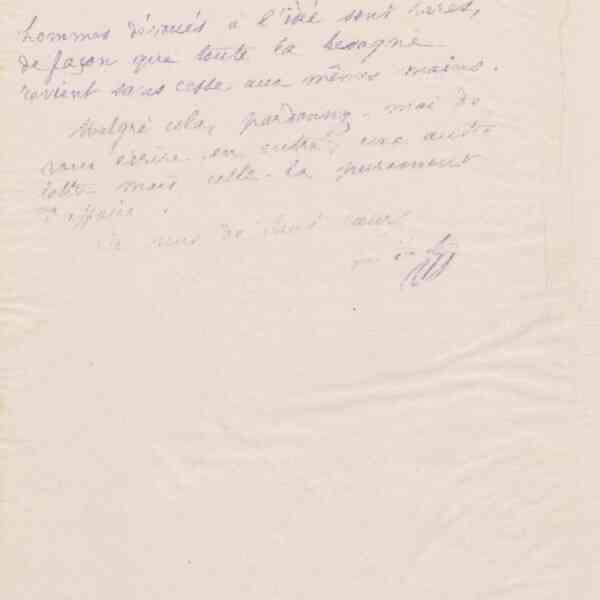 hommes dévoués à l'idée sont rares,
de façon que toute la besogne
revient sans cesse aux mêmes mains.
Malgré cela, pardonnez-moi de
vous écrire en outre, une autre
lettre mais celle-là purement
d'affaire.
Je suis de tout cœur